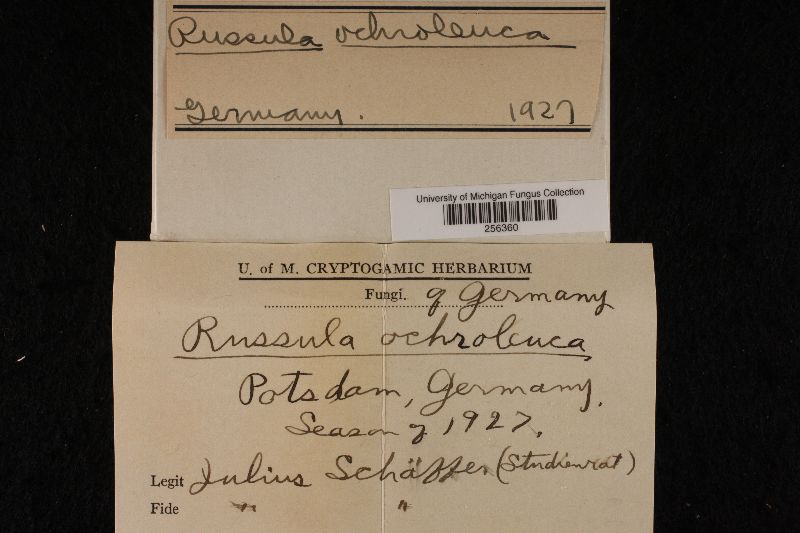 Russula ochroleuca
Germany. 1927
University of Michigan Fungus Collection
256360
U. of M. CRYPTOGAMIC HERBARIUM
Fungi. of Germany
Russula ochroleuca
Potsdam, Germany.
Season of 1927.
Legit Julius Schäffer (Studienrat)
Fide " "